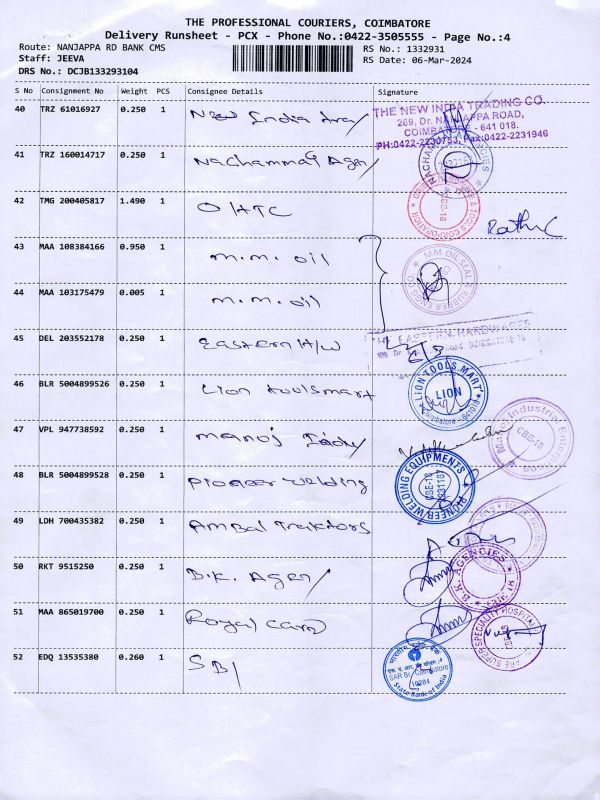 THE PROFESSIONAL COURIERS, COIMBATORE
Delivery Runsheet - PCX - Phone No.:0422-3505555 - Page No.:4
Route: NANJAPPA RD BANK CMS
RS No.: 1332931
Staff: JEEVA
RS Date: 06-Mar-2024
DRS No.: DCJB133293104
S No Consignment No Weight PCS Consignee Details Signature
40 TRZ 61016927 0.250 1 New India
THE NEW INDIA TRADING CO.
269, Dr. NANJAPPA ROAD,
COIMBATORE - 641 018.
PH:0422-2230753, Fax:0422-2231946
41 TRZ 160014717 0.250 1 Nachammai Agen
42 TMG 200405817 1.490 1 OHTC
43 MAA 108384166 0.950 1 m.m. oil
MM OIL SEAL & RUBBER ENGG CO
44 MAA 103175479 0.005 1 m.m. oil
45 DEL 203552178 0.250 1 Eastern H/W
EASTERN HARDWARES
46 BLR 5004899526 0.250 1 Lion toolsmart
LION TOOLS MART
LION
Coimbatore
47 VPL 947738592 0.250 1 manoj
CBE-18
48 BLR 5004899528 0.250 1 Pioneer welding
PIONEER WELDING EQUIPMENTS
CBE-18
49 LDH 700435382 0.250 1 Ambal Traktors
50 RKT 9515250 0.250 1 B.K. Agen
B.K. AGENCIES
51 MAA 865019700 0.250 1 Royal care
SUPER SPECIALITY HOSPITAL
52 EDQ 13535380 0.260 1 SBI
भारतीय स्टेट बैंक
SAR Br. Coimbatore
10204
State Bank of India